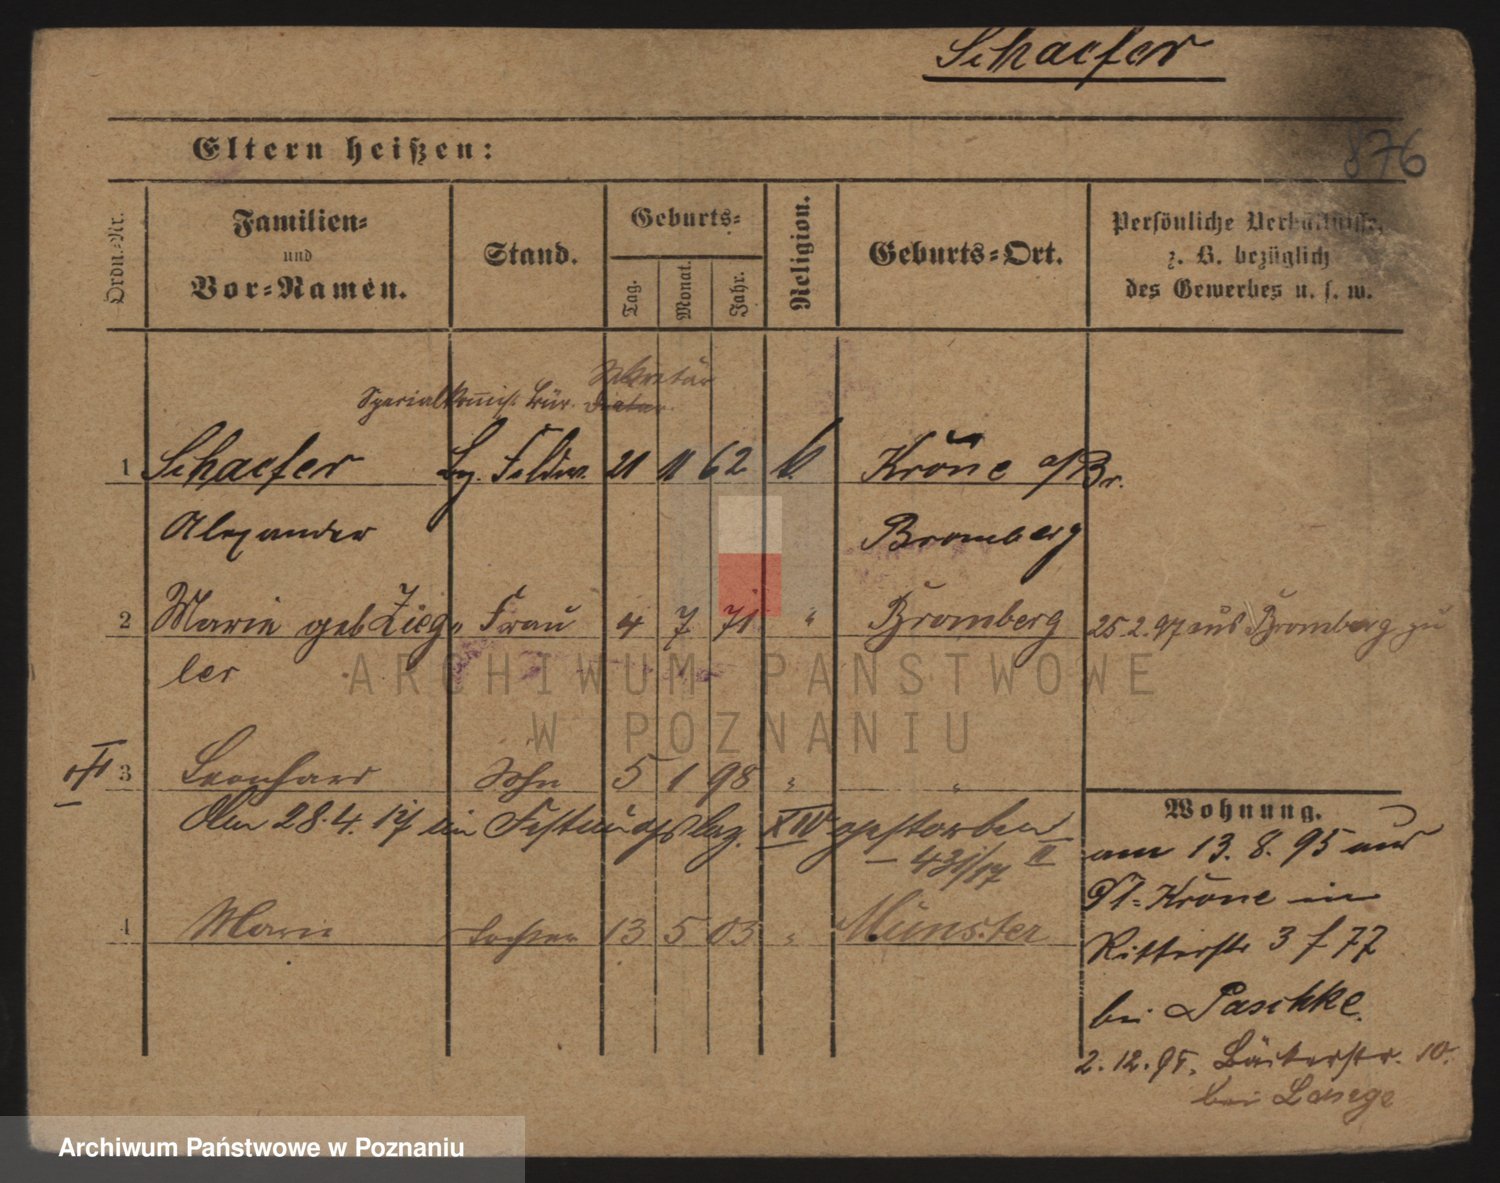 Schaefer
876
Eltern heißen:
Ordn.-Nr.
Familien-
und
Vor-Namen.
Stand.
Geburts-
Tag.
Monat.
Jahr.
Religion.
Geburts-Ort.
Persönliche Verhältnisse,
z. B. bezüglich
des Gewerbes u. s. w.
Sekretär
Spezialkommiss. Bür. Diätar.
1 Schaefer Feldw. 21 11 62 k. Krone a/Br.
Alexander Bromberg
2 Marie geb Zieg- Frau 4 7 71 " Bromberg 25.2.97 aus Bromberg zu
ler
3 Leonhard Sohn 5 1 98 " "
Am 28.4.17 im Festungslaz. XIV gestorben
431/17 II
4 Marie Tochter 13 5 03 " Münster
Wohnung.
am 13.8.95 aus
Pl-Krone in
Ritterstr 3 f 77
bei Paschke.
2.12.95. Bäckerstr. 10.
bei Lange
ARCHIWUM PAŃSTWOWE
W POZNANIU
Archiwum Państwowe w Poznaniu